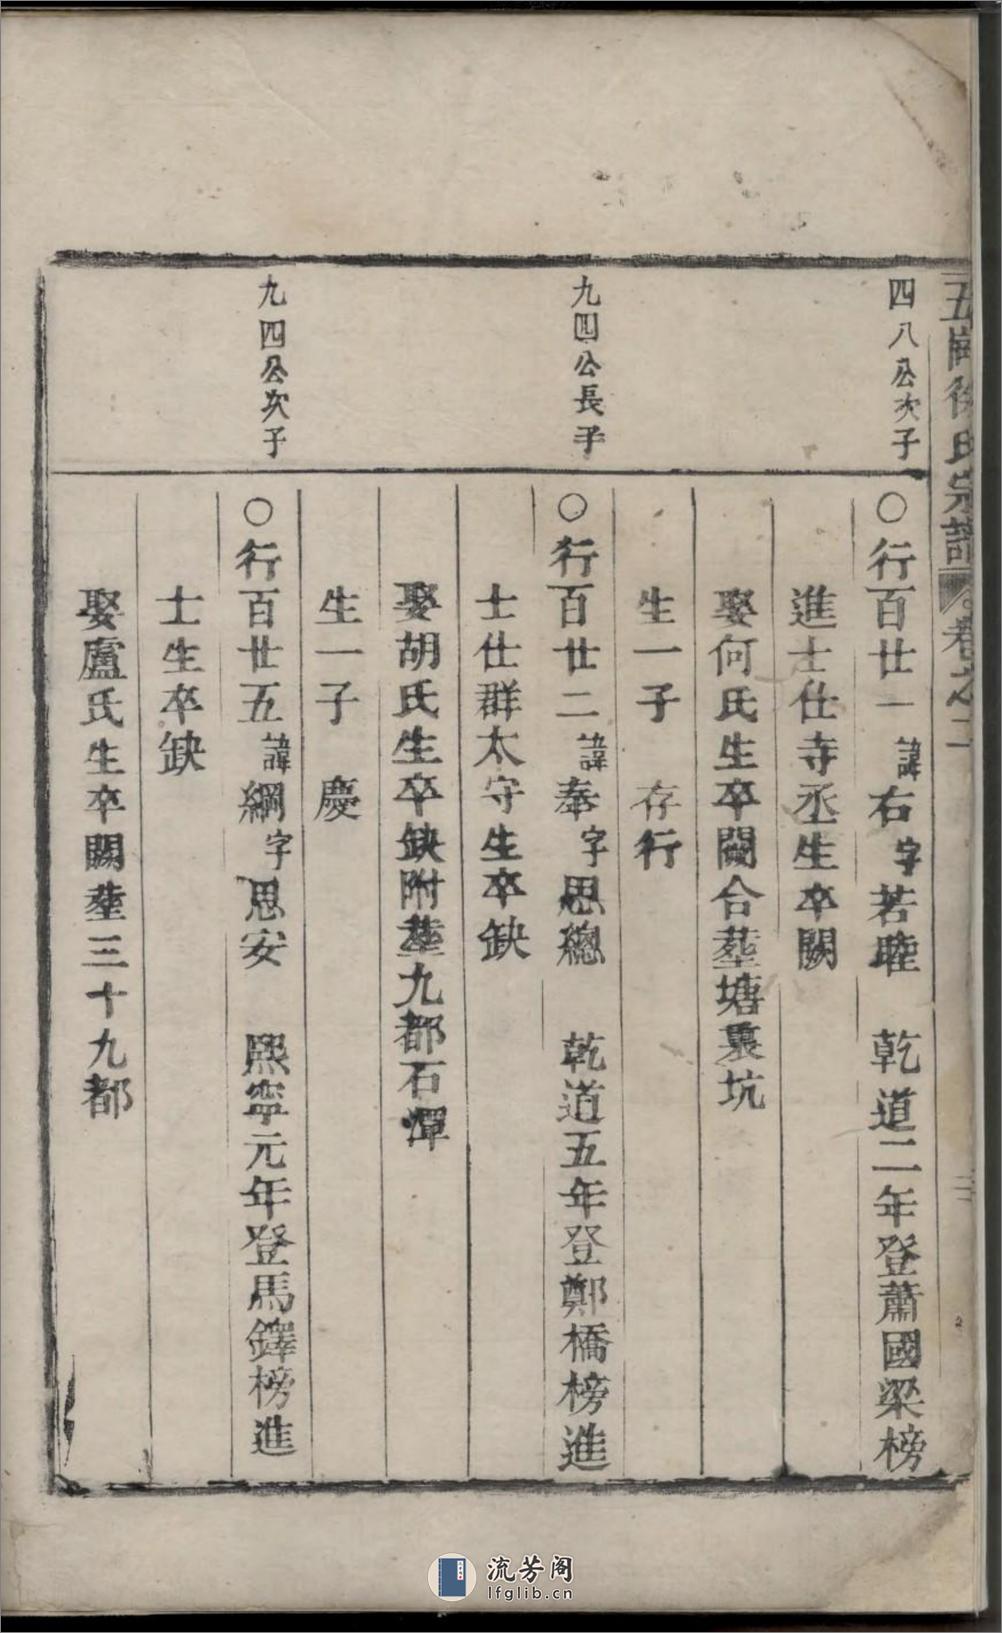 氏宗譜 卷之二
四八公次子
○行百廿一諱右字若睦 乾道二年登蕭國梁榜
進士仕寺丞生卒闕
娶何氏生卒闕合塟塘裏坑
生一子 存行
九四公長子
○行百廿二諱奉字思總 乾道五年登鄭橋榜進
士仕群太守生卒缺
娶胡氏生卒缺附塟九都石潭
生一子 慶
九四公次子
○行百廿五諱綱字思安 熙寧元年登馬鐸榜進
士生卒缺
娶盧氏生卒闕塟三十九都
流芳阁
lfglib.cn